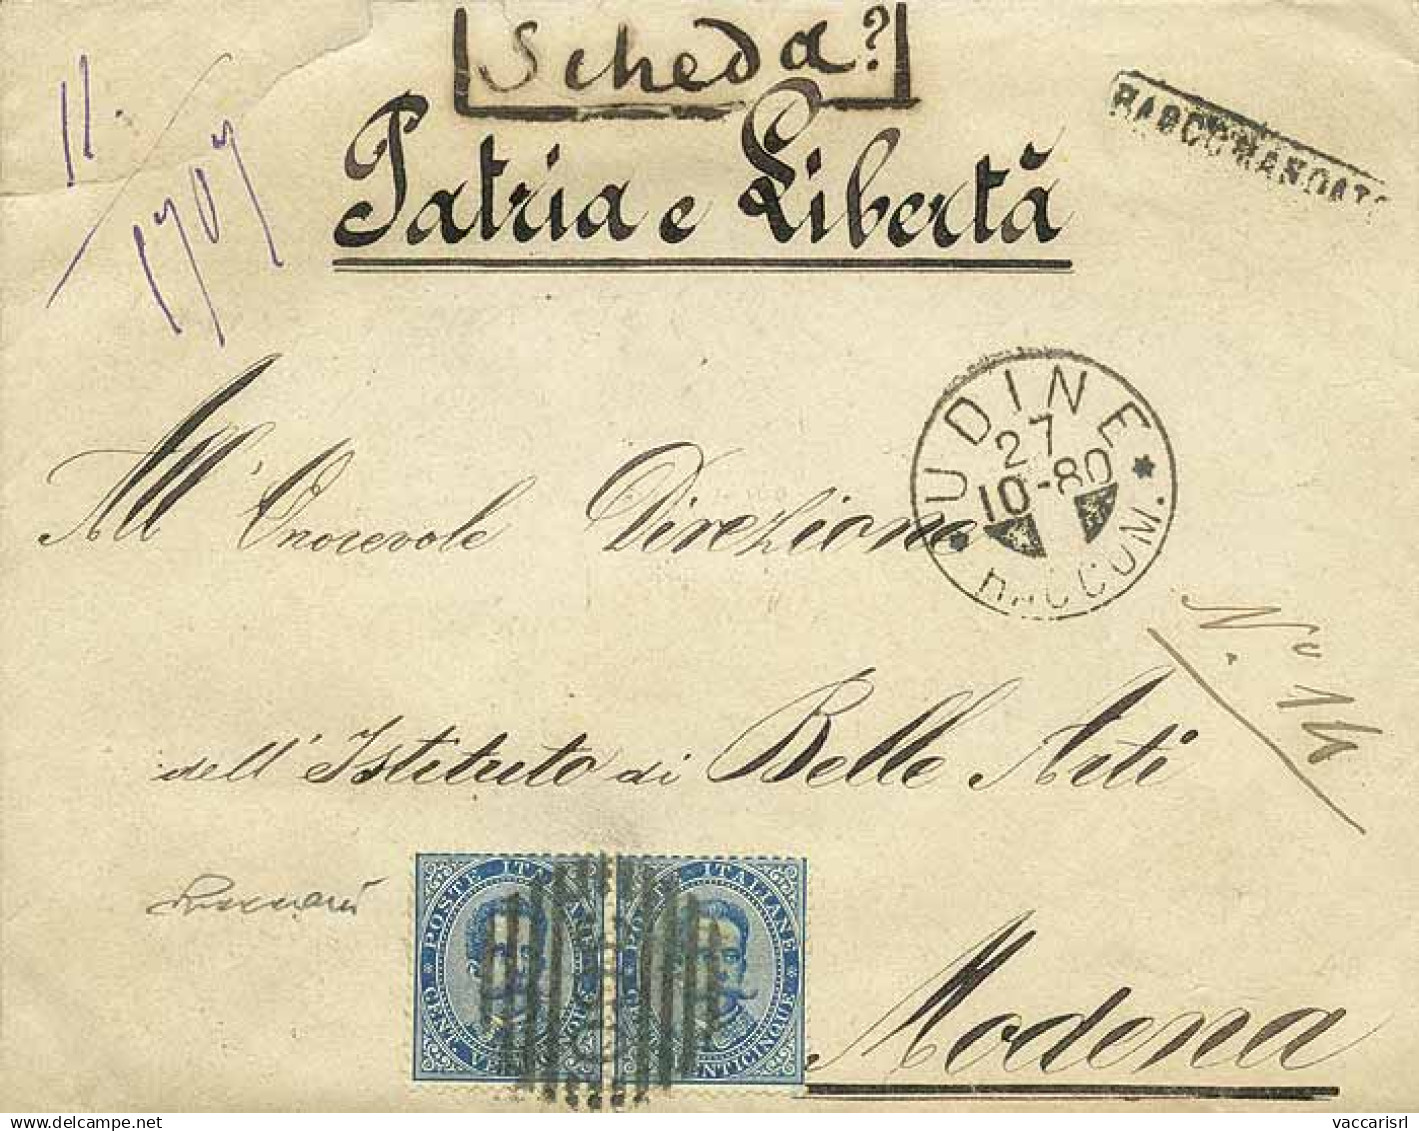 Scheda?
11.
1707
Patria e Libertà
RACCOMANDATO
UDINE
27
10-80
RACCOM.
All' Onorevole Direzione
No 14
dell' Istituto di Belle Arti
POSTE ITALIANE
CENT. VENTICINQUE
POSTE ITALIANE
CENT. VENTICINQUE
Modena
vaccarisrl